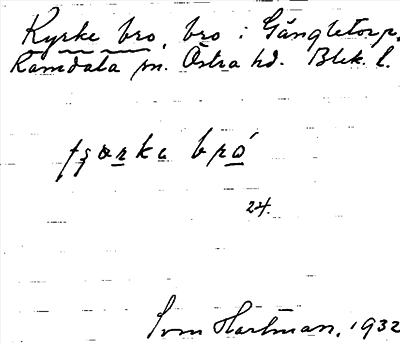 Kyrke bro, bro i Gängletorp,
Ramdala sn. Östra hd. Blek. l.
bró
24.
Ivar Hartman, 1932